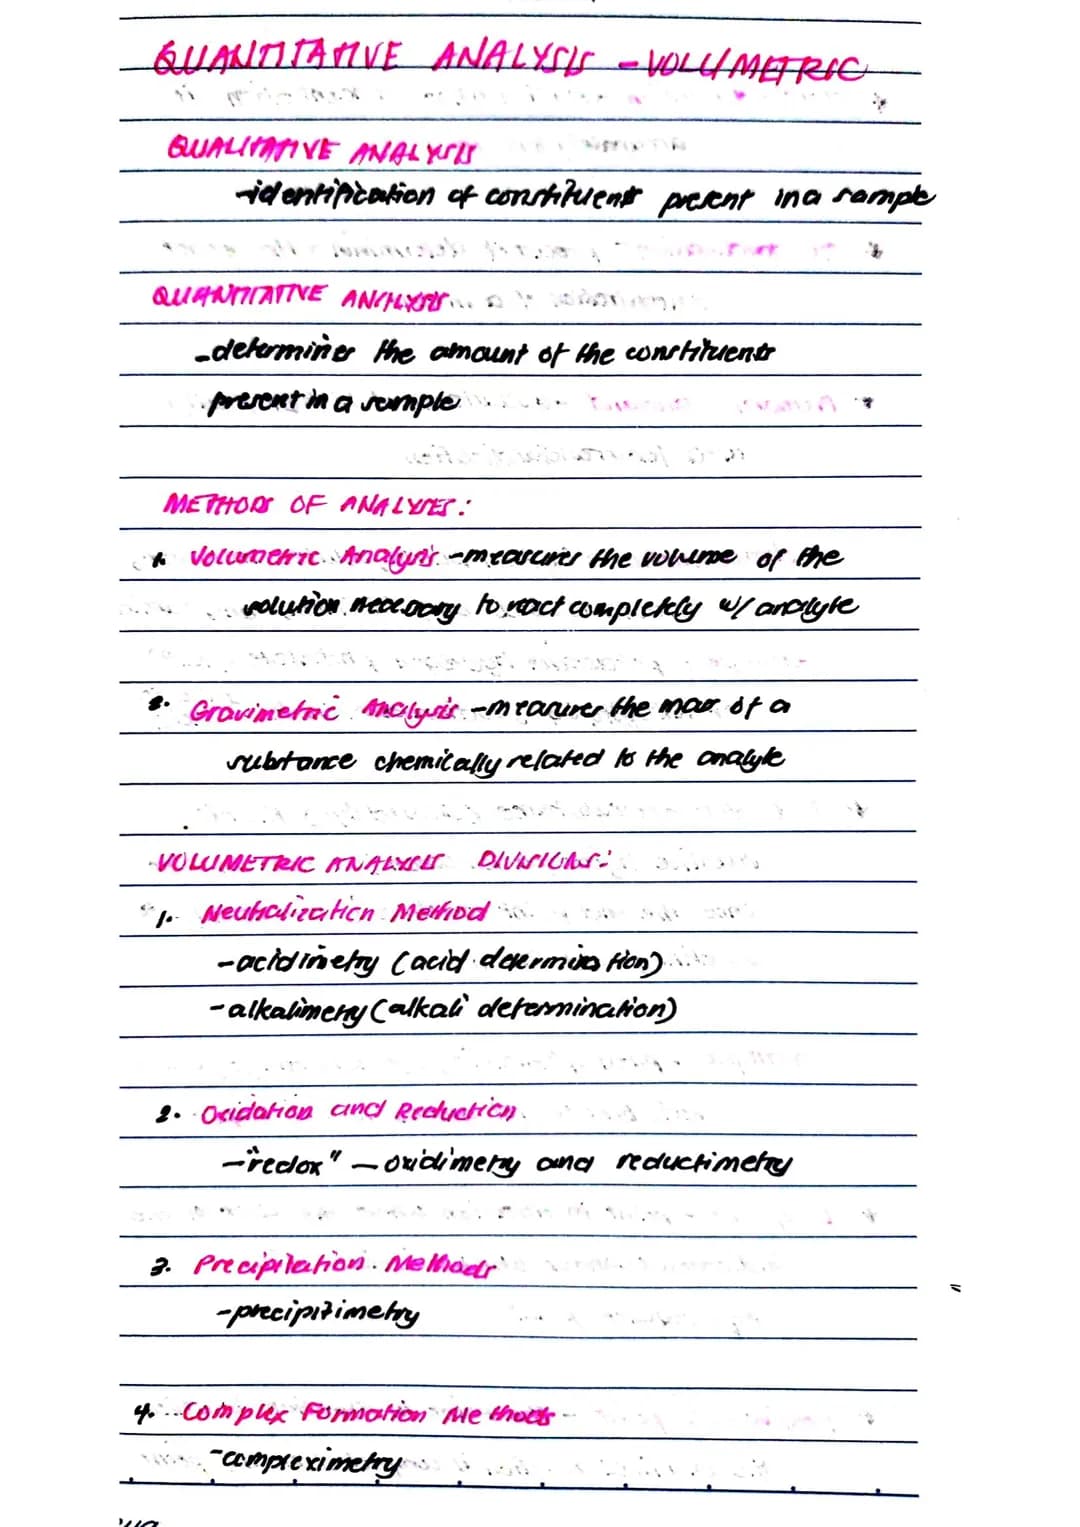 QUANTITATIVE ANALYSIS - VOLUMETRIC
QUALITATIVE ANALYSIS
-identification of constituents present in a sample
QUANTITATIVE ANALYSIS
-determines the amount of the constituents
present in a sample
METHODS OF ANALYSES:
1. Volumetric Analysis -measures the volume of the
solution necessary to react completely w/ analyte
2. Gravimetric Analysis -measures the mass of a
substance chemically related to the analyte
VOLUMETRIC ANALYSIS DIVISIONS:
1. Neutralization Method
-acidimetry (acid determination)
-alkalimetry (alkali determination)
2. Oxidation and Reduction
-"redox" - oxidimetry and reductimetry
3. Precipitation Methods
-precipitimetry
4. Complex Formation Methods
-compleximetry